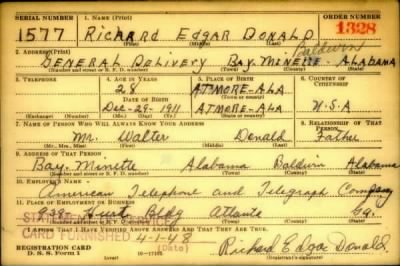 SERIAL NUMBER 1. NAME (Print) ORDER NUMBER
1577 RICHARD EDGAR DONALD 1328
(First) (Middle) (Last)
2. ADDRESS (Print) Baldwin
GENERAL DELIVERY BAY MINETTE ALABAMA
(Number and street or R. F. D. number) (Town) (County) (State)
3. TELEPHONE 4. AGE IN YEARS 5. PLACE OF BIRTH 6. COUNTRY OF CITIZENSHIP
28 ATMORE-ALA
(Town or county)
DATE OF BIRTH
DEC-29-1911 ATMORE-ALA U-S-A
(Exchange) (Number) (Mo.) (Day) (Yr.) (State or country)
7. NAME OF PERSON WHO WILL ALWAYS KNOW YOUR ADDRESS 8. RELATIONSHIP OF THAT PERSON
Mr. Walter Donald Father
(Mr., Mrs., Miss) (First) (Middle) (Last)
9. ADDRESS OF THAT PERSON
Bay Minette Alabama Baldwin Alabama
(Number and street or R. F. D. number) (Town) (County) (State)
10. EMPLOYER'S NAME
American Telephone and Telegraph Company
11. PLACE OF EMPLOYMENT OR BUSINESS
Hurt Bldg Atlanta Ga.
(Number and street or R. F. D. number) (Town) (County) (State)
I AFFIRM THAT I HAVE VERIFIED ABOVE ANSWERS AND THAT THEY ARE TRUE.
CARD FURNISHED 4-1-48
(Date)
REGISTRATION CARD
D. S. S. Form 1 16-17105 Richard Edgar Donald
(Registrant's signature)